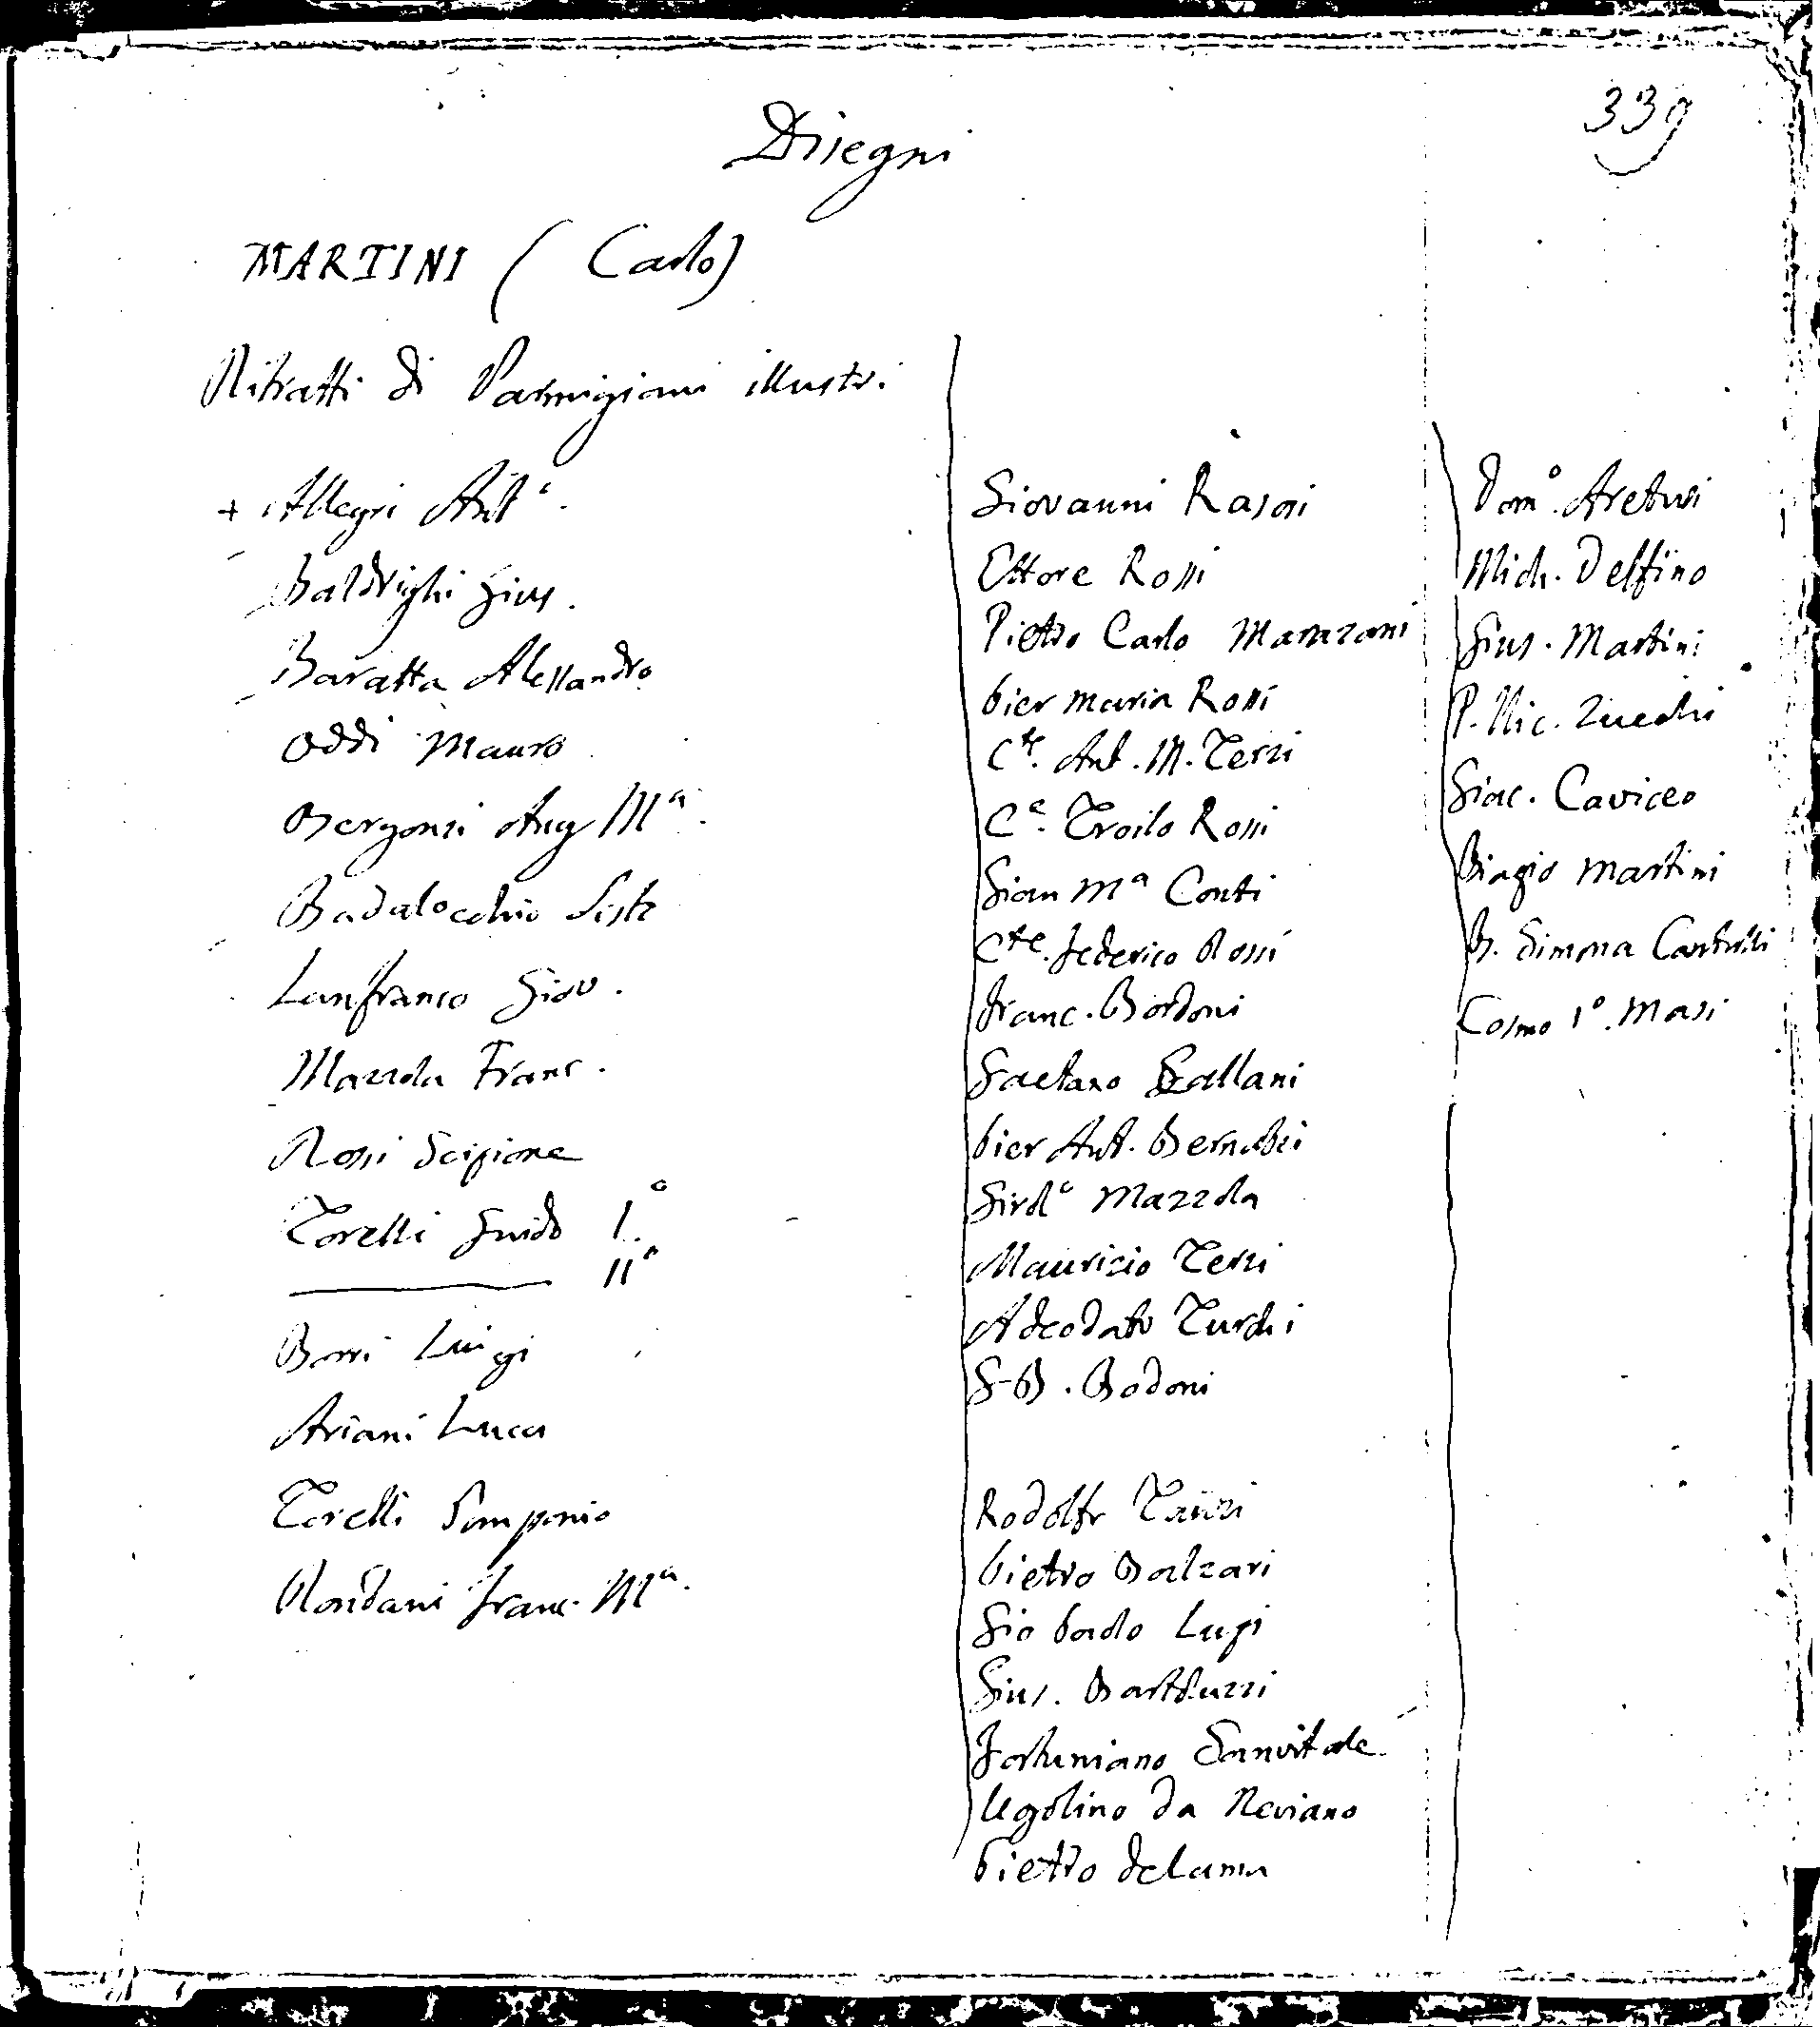 339
Disegni
MARTINI (Carlo)
Ritratti di Parmigiani illustri
+ Allegri Antº.
Baldrighi Gius.
Baratta Alessandro
Oddi Mauro
Bergonzi Aug Mª.
Badalocchio Sisto
Lanfranco Giov.
Mazzola Franc.
Rossi Scipione
Torelli Guido I.º
——— IIº
Barri Luigi
Ariani Luca
Torelli Pomponio
Rondani Franc. Mª.
Giovanni Rasori
Ettore Rossi
Pietro Carlo Marazani
Pier Maria Rossi
Cte. Ant. M. Terzi
Ce. Troilo Rossi
Gian Mª Conti
Cte. Federico Rossi
Franc. Bordoni
Gaetano Callani
Pier Ant. Bernabei
Girolº Mazzola
Maurizio Terzi
Adeodato Turchi
G-B. Bodoni
Rodolfo
Pietro Balzari
Gio Paolo Lupi
Gius. Bartoluzzi
Fortuniano Sanvitale
Ugolino da Neviano
Pietro Delama
Domº. Aretusi
Mich. Delfino
Gius. Martini
P. Nic. Zucchi
Giac. Caviceo
Biagio Martini
B. Simona
Cosmo 1º. Masi